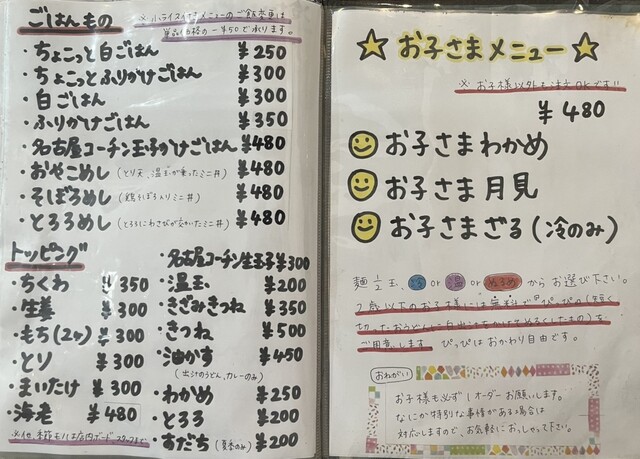 ごはんもの
※小ライス付きメニューのご飯変更は
単品価格の－¥50で承ります。
・ちょこっと白ごはん ¥250
・ちょこっとふりかけごはん ¥300
・白ごはん ¥300
・ふりかけごはん ¥350
・名古屋コーチン玉子かけごはん ¥480
・おやこめし(とり天、温玉が乗ったミニ丼) ¥480
・そぼろめし(鶏そぼろ入りミニ丼) ¥480
・とろろめし(とろろにわさびが効いたミニ丼) ¥480
トッピング
・ちくわ ¥350
・生姜 ¥300
・もち(2ヶ) ¥300
・とり ¥300
・まいたけ ¥300
・海老 ¥480
※他、季節モノは店内ボード
・名古屋コーチン生玉子 ¥300
・温玉 ¥200
・きざみきつね ¥350
・きつね ¥500
・油かす ¥450
(出汁のうどん、カレーのみ)
・わかめ ¥250
・とろろ ¥200
・すだち(夏季のみ) ¥200
☆お子さまメニュー☆
※お子様以外も注文OKです!!
¥480
お子さまわかめ
お子さま月見
お子さまざる(冷のみ)
麺½玉、冷 or 温 or ぬるめ からお選び下さい。
2歳以下のお子様には無料で『ぴっぴ』(短く
切ったおうどんに
ご用意します。ぴっぴはおかわり自由です。
おねがい
お子様も必ず1オーダーお願いします。
なにか特別な事情がある場合は
対応しますので、お気軽におっしゃって下さい。